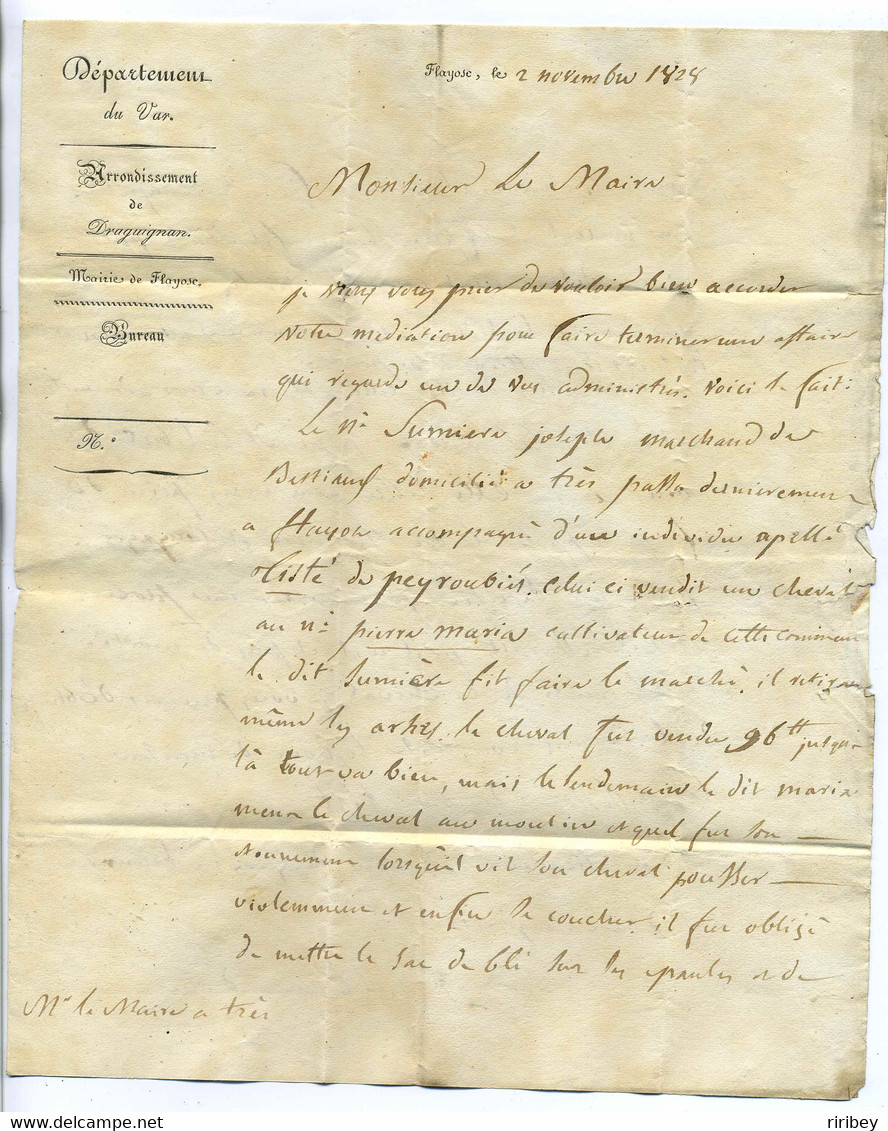 Département
du Var.
Arrondissement
de
Draguignan.
Mairie de Flayosc.
Bureau
N.°
Flayosc, le 2 novembre 1828
Monsieur Le Maire
je viens vous prier de vouloir bien accorder
votre mediation pour faire terminer une affaire
qui regarde un de vos administrés. voici le fait:
Le Né Sumiere joseph marchand de
Bestiaux domicilié a très passa dernieremen
a flayosc accompagné d'un individu apellé
tisté de peyroubiés. celui ci vendit un cheval
au Né pierre maria cultivateur de cette commun
le dit Sumière fit faire le marché, il retira
même les arhes. le cheval fut vendu 96tt jusqui
là tout va bien, mais le lendemain le dit maria
mena le cheval au moulin et quel fut son
etonnement lorsquil vit son cheval pousser
violemment et enfin se coucher. il fut obligé
de mettre le sac de blé sur les epaules et de
Mr le Maire a très
riribey